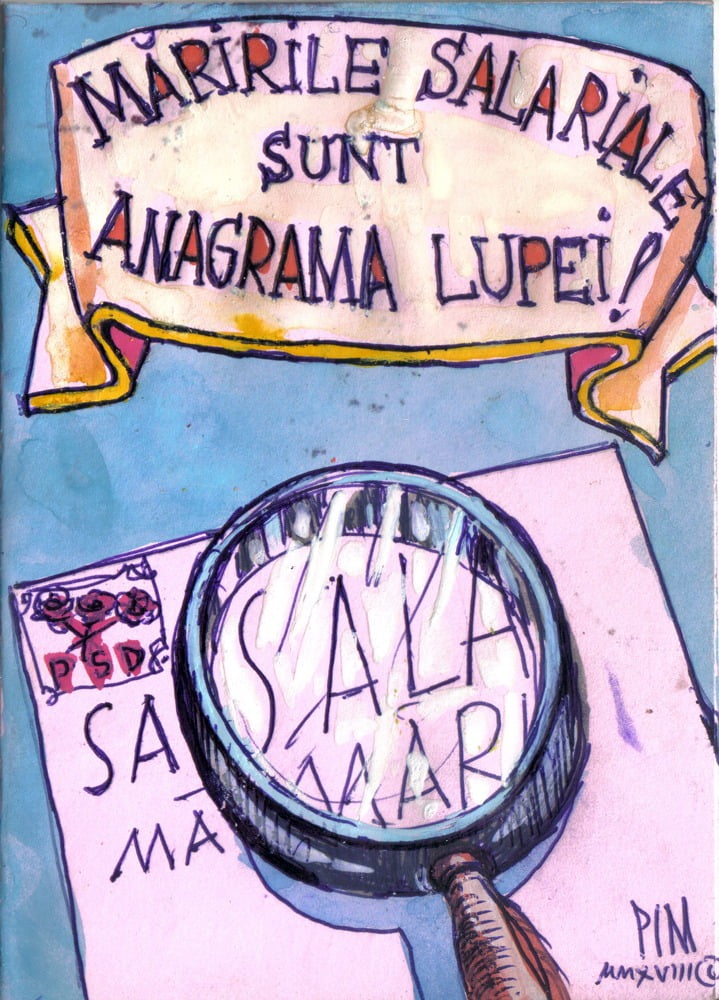 MĂRIRILE SALARIALE
SUNT
ANAGRAMA LUPEI!
PSD
SALA
SA
MAARI
MA
PIM
MMXVIII©